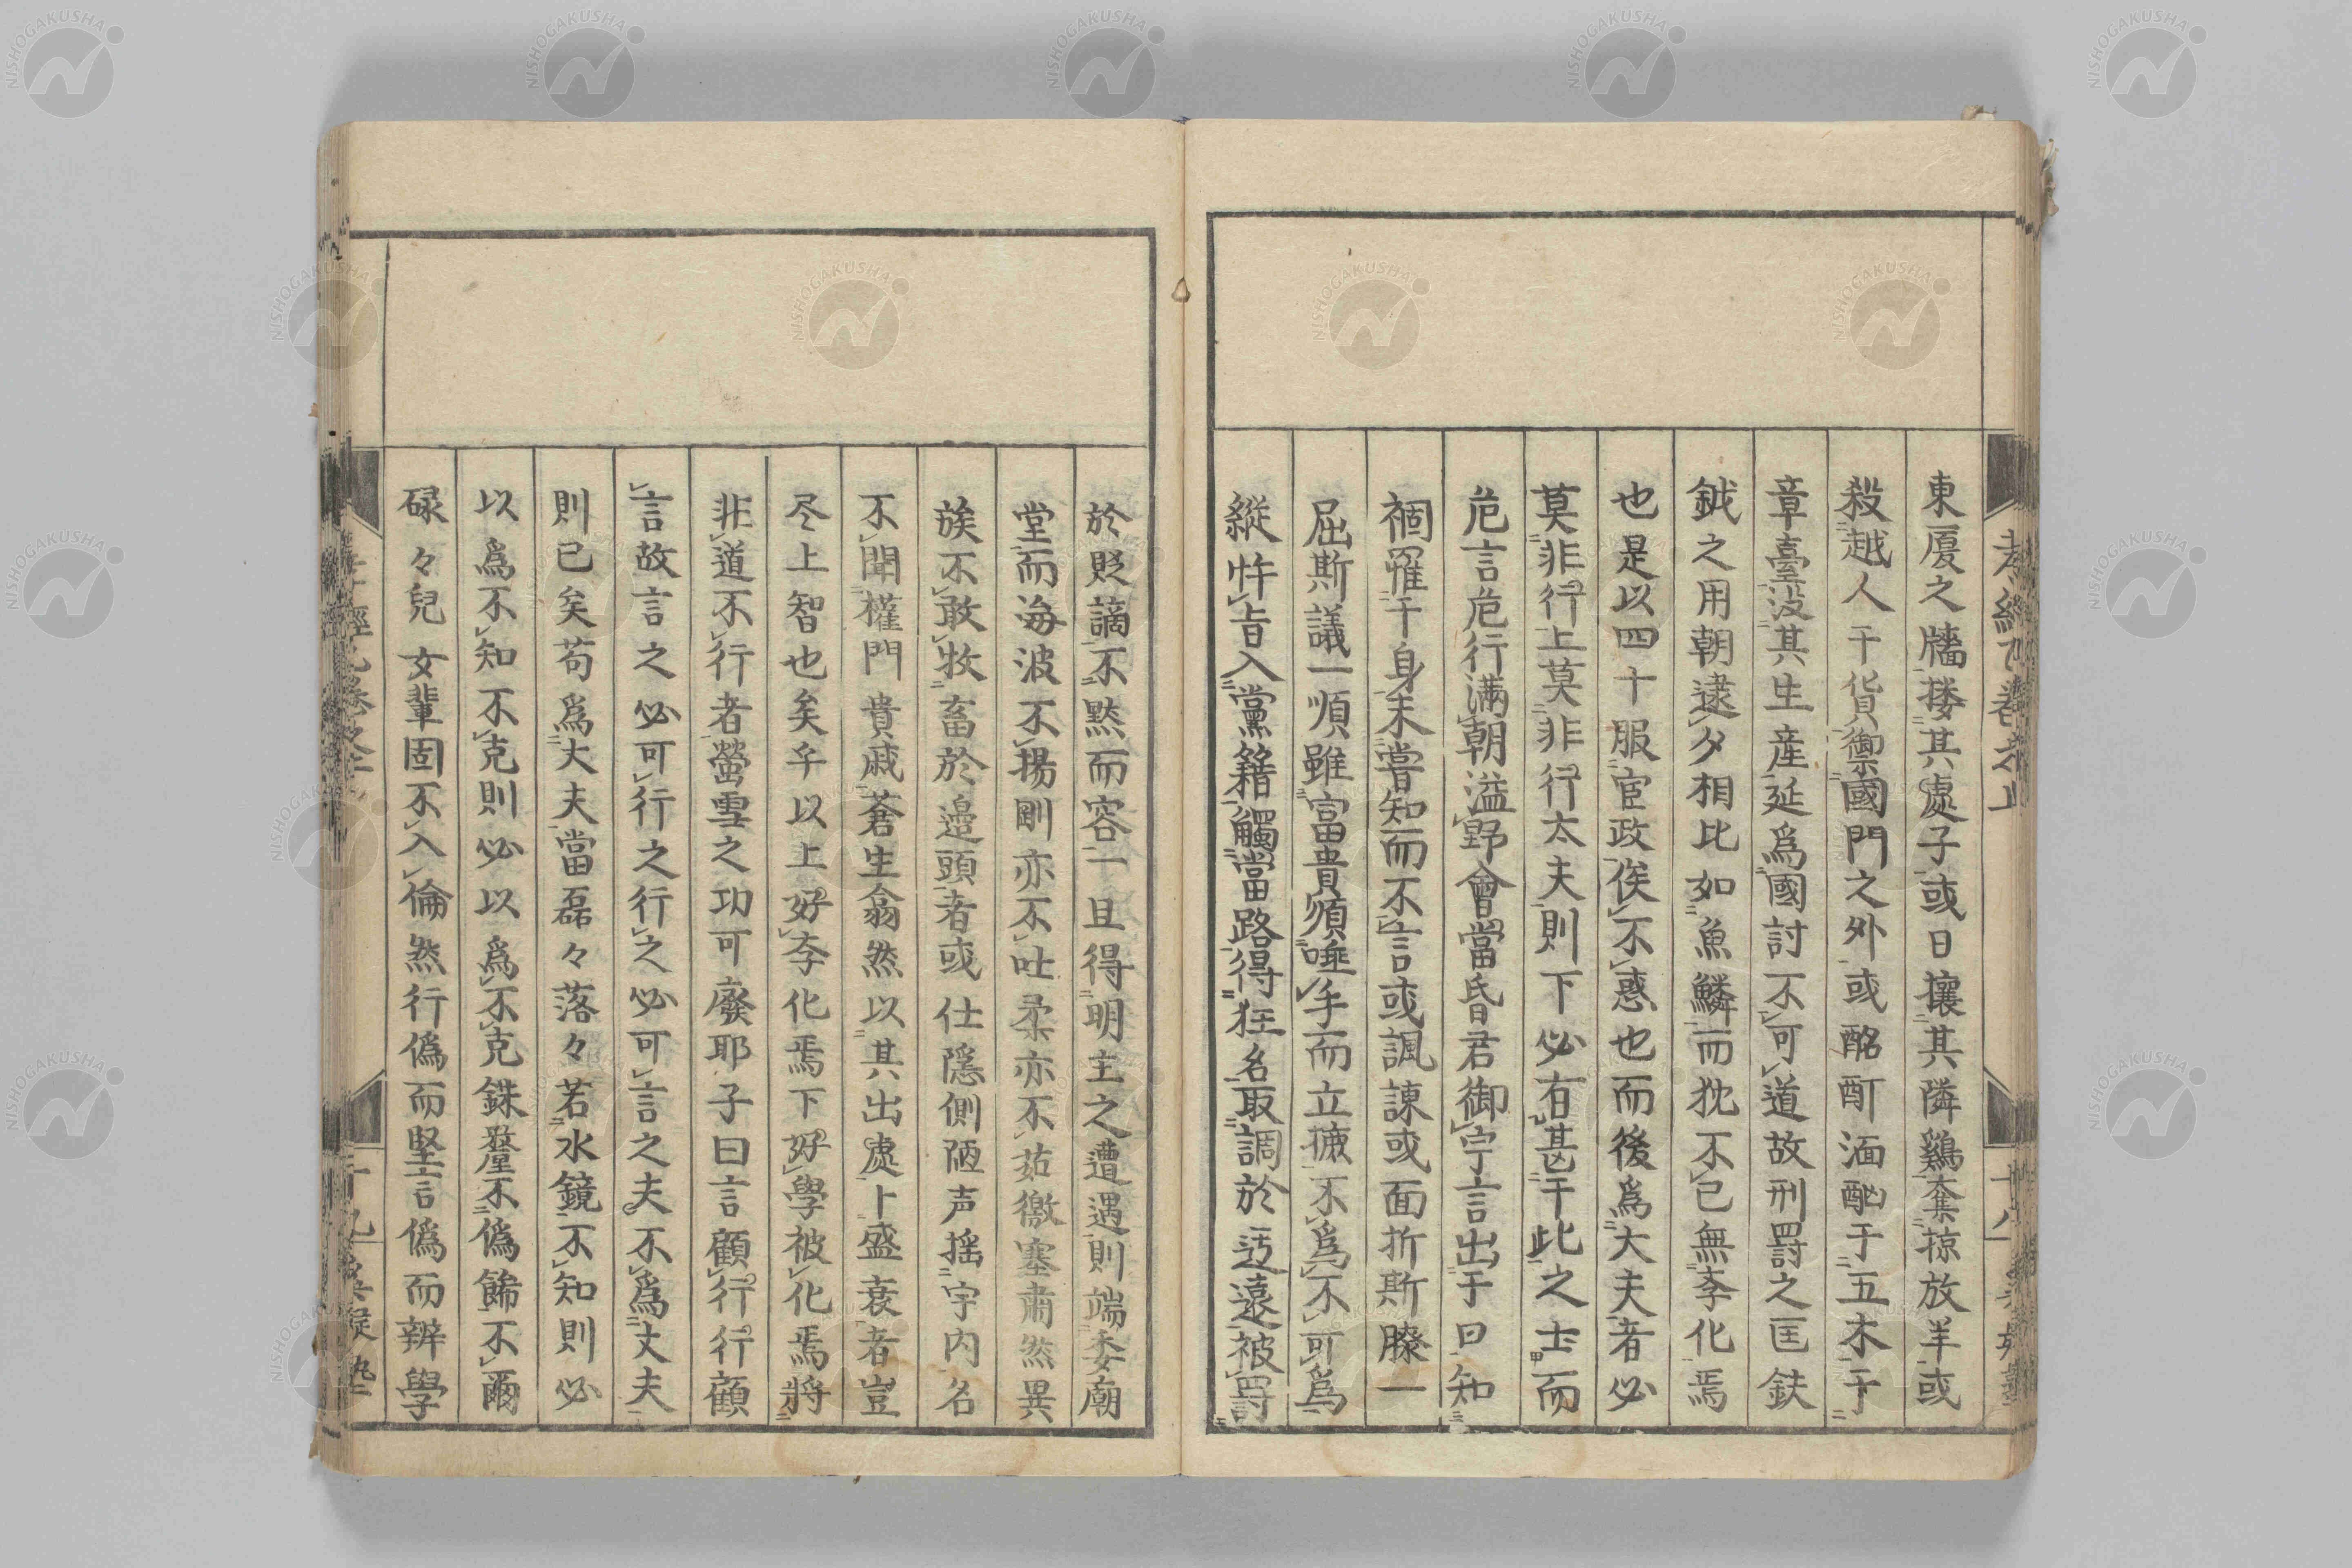 東厦之牆摟其處子或日攘其隣鷄奪掠放羊或
殺越人于貨禦國門之外或酩酊湎酗于五木于
章臺没其生産延爲國討不可道故刑罰之匡鈇
鉞之用朝逮夕相比如魚鱗而犹不已無孝化焉
也是以四十服宦政俟不惑也而後爲大夫者必
莫非行上莫非行太夫則下必有甚于此之士而
危言危行満朝溢野會當昏君御宇言出于口知
禍罹于身未嘗知而不言或諷諫或面折斯膝一
屈斯議一順雖富貴順唾手而立摭不爲不可爲
縱忤旨入黨籍觸當路得狂名取調於迃遠被罸
於貶謫不黙而容一旦得明主之遭遇則端委廟
堂而海波不揚剛亦不吐柔亦不茹徼塞肅然異
族不敢牧畜於邉頭者或仕隱側陋声揺宇内名
不聞權門貴戚蒼生翕然以其出處卜盛衰者豈
尽上智也矣乎以上好孝化焉下好學被化焉將
非道不行者螢雪之功可廢耶子曰言顧行行顧
言故言之必可行之行之必可言之夫不爲丈夫
則已矣苟爲大夫當磊々落々若水鏡不知則必
以爲不知不克則必以爲不克銖釐不僞餙不爾
碌々兒女輩固不入倫然行僞而堅言僞而辨學